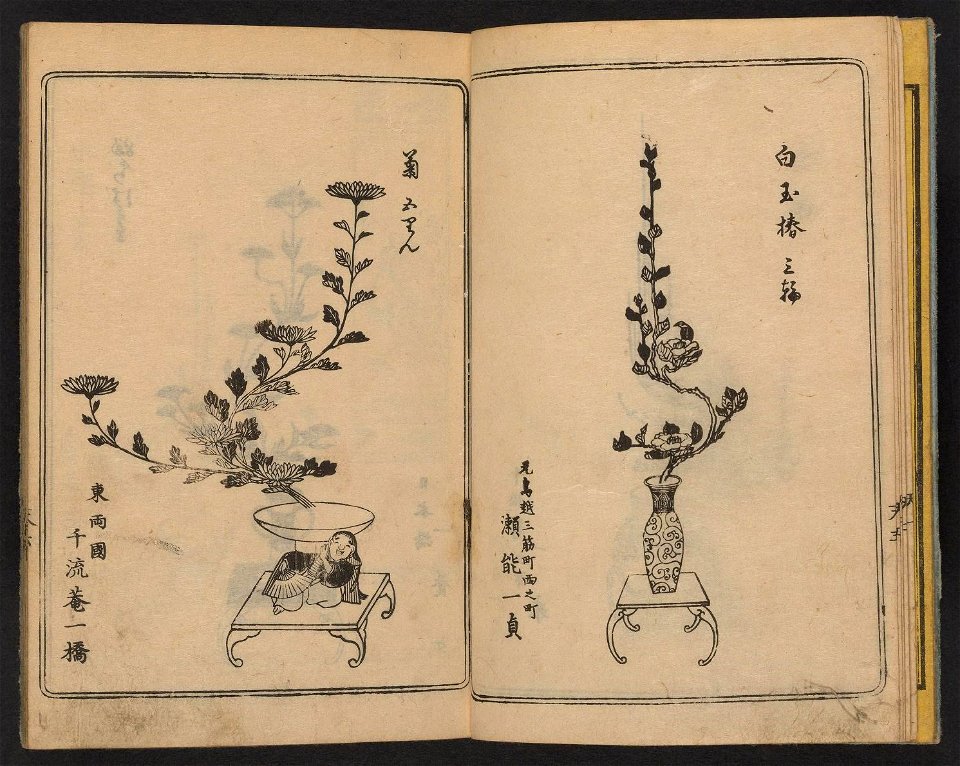 白玉椿 三輪
元鳥越三筋町西之町
瀬能一貞
菊 五りん
東両國
千流菴一橋